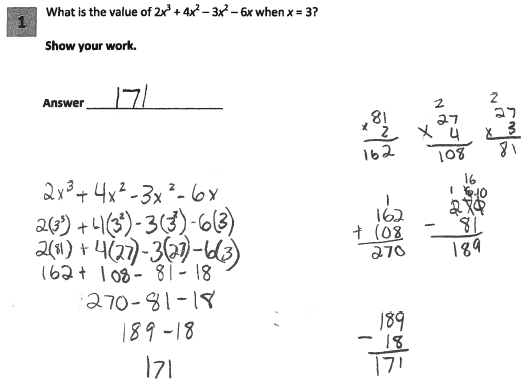 1
What is the value of 2x³ + 4x² – 3x² – 6x when x = 3?
Show your work.
Answer 171
2x³ + 4x² - 3x² - 6x
2(3³) + 4(3²) - 3(3²) - 6(3)
2(81) + 4(27) - 3(27) - 6(3)
162 + 108 - 81 - 18
270 - 81 - 18
189 - 18
171
81
x 2
162
2
27
x 4
108
2
27
x 3
81
1
162
+ 108
270
16
1 6 10
270
- 81
189
189
- 18
171